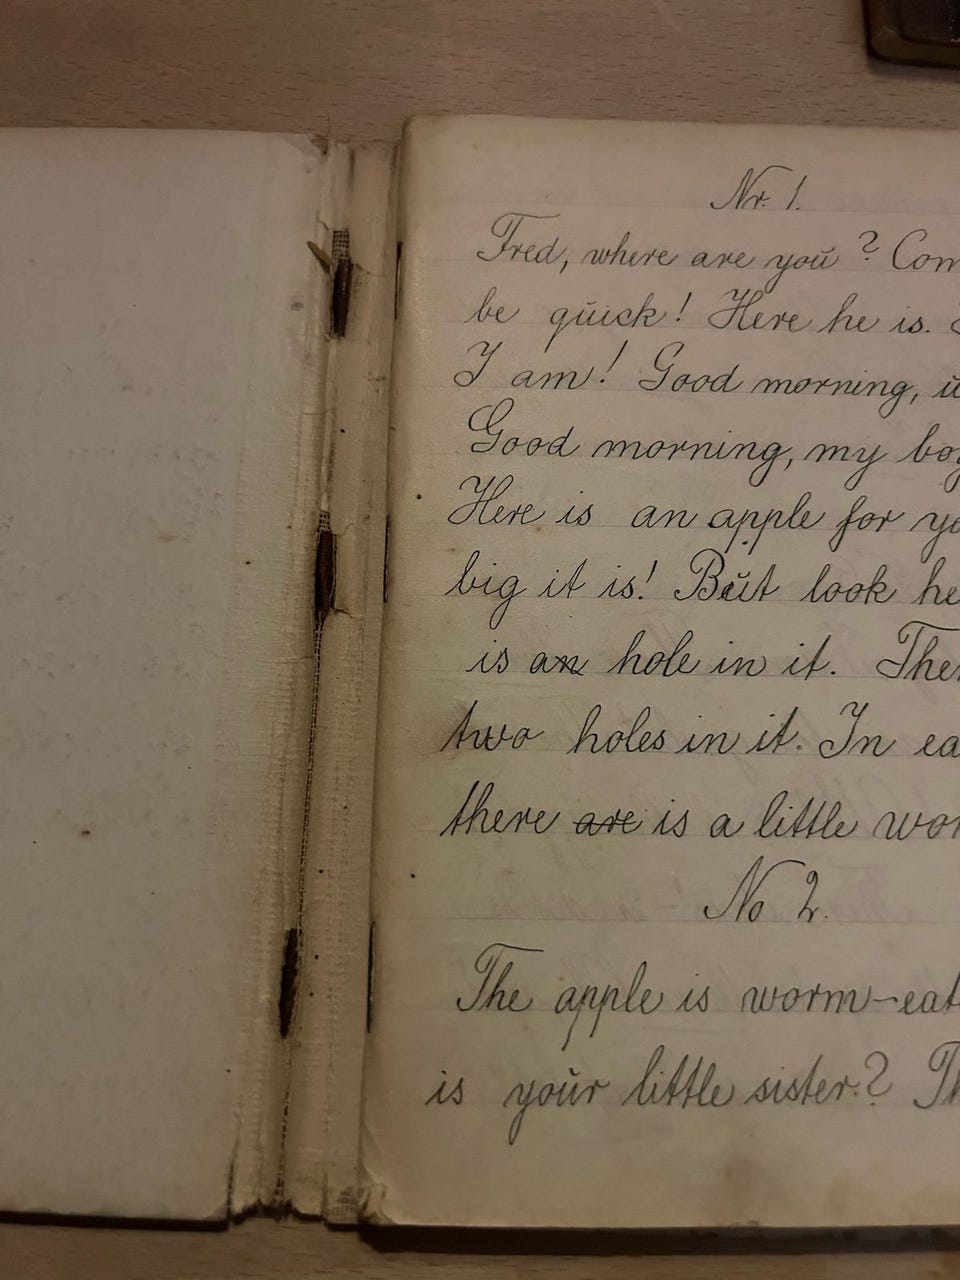 Nr. 1.
Fred, where are yoŭ? Com
be qŭick! Here he is.
I am! Good morning, ŭ
Good morning, my boy
Here is an apple for yo
big it is! Bŭt look he
is an hole in it. Ther
two holes in it. In ea
there are is a little wor
No 2.
The apple is worm-eat
is yoŭr little sister? Th